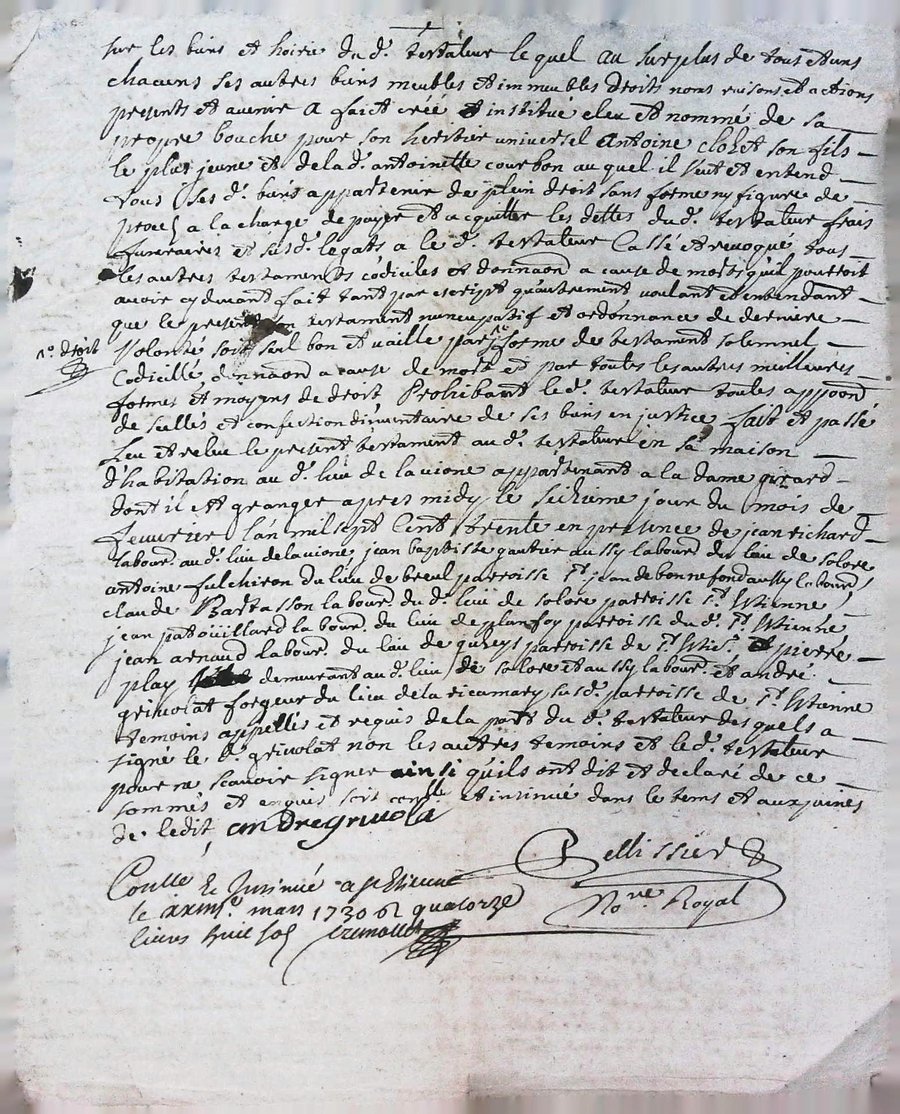 sur les biens et hoirie du d.' testateur lequel au surplus de tous et uns
chacuns ses autres biens meubles et immeubles droits noms raisons et actions
presents et avenir a fait créé et institué eleu et nommé de sa
propre bouche pour son heritier universel antoine clozet son fils
le plus jeune et de la d.' antoinette courbon auquel il veut et entend
tous ses d.' biens appartenir de plein droit sans forme ny figure de
proces a la charge de payer et acquitter les dettes du d.' testateur frais
funeraires et susd.' legats a le d.' testateur cassé et revoqué tous
les autres testaments codiciles et donnaon a cause de mort qu'il pourroit
avoir cy devant fait tant par escript qu'autrement, voulant et entendant
que le present testament nuncupatif et ordonnance de derniere
volonté soit seul bon et vaille par forme de testament solemnel
1.° droit
codicille donnaon a cause de mort et par toutes les autres meilleures
formes et moyens de droit Prohibant le d.' testateur toutes appoon
de sellés et confection d'inventaire de ses biens en justice fait et passé
leu et releu le present testament au d.' testateur en sa maison
d'habitation au d.' lieu de lavione appartenant a la dame girard
dont il est granger apres midy le seizieme jour du mois de
fevurier l'an mil sept cent trente en presence de jean richard
labour.' au d.' lieu de lavione jean baptiste gautier aussy labour.' du lieu de solore
antoine fulchiron du lieu de breul parroisse s.t jean de bonnefond aussy labour.'
claude Bartasson labour.' du d.' lieu de solore parroisse s.t Etienne
jean patouillard labour.' du lieu de planfoy parroisse du d.' s.t Etienne
jean arnaud labour.' du lieu de parroisse de s.t Eti.e et pierre
play demeurant au d.' lieu de solore et aussy labour.' et andré
grivolat forgeur du lieu de la ricamary susd.' parroisse de s.t Etienne
temoins appellés et requis de la part du d.' testateur des quels a
signé le d.' grivolat non les autres temoins et le d.' testateur
pour ne scavoir signer ainsi qu'ils ont dit et declaré de ce
sommés et enquis soit con.llé et insinué dans le tems et aux peines
de l'edit, andre grivola
Pellissier
No.re Royal
Conllé Et Insinué a s.t Etienne
le mars 1730 quatorze
livres huit sol